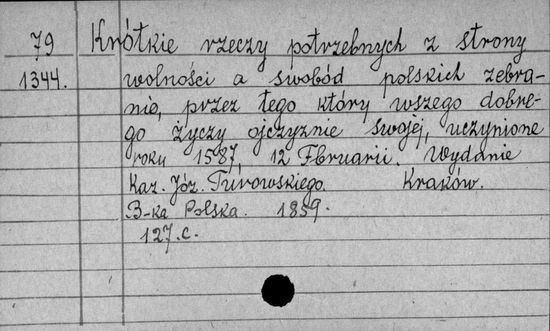 79 Krótkie rzeczy potrzebnych z strony
1344. wolności a swobód polskich zebra-
nie, przez tego który wszego dobre-
go życzy ojczyznie swojej, uczynione
roku 1587, 12 Fbruarii. Wydanie
Kaz. Józ. Turowskiego. Kraków.
B-ka Polska. 1859.
127.c.